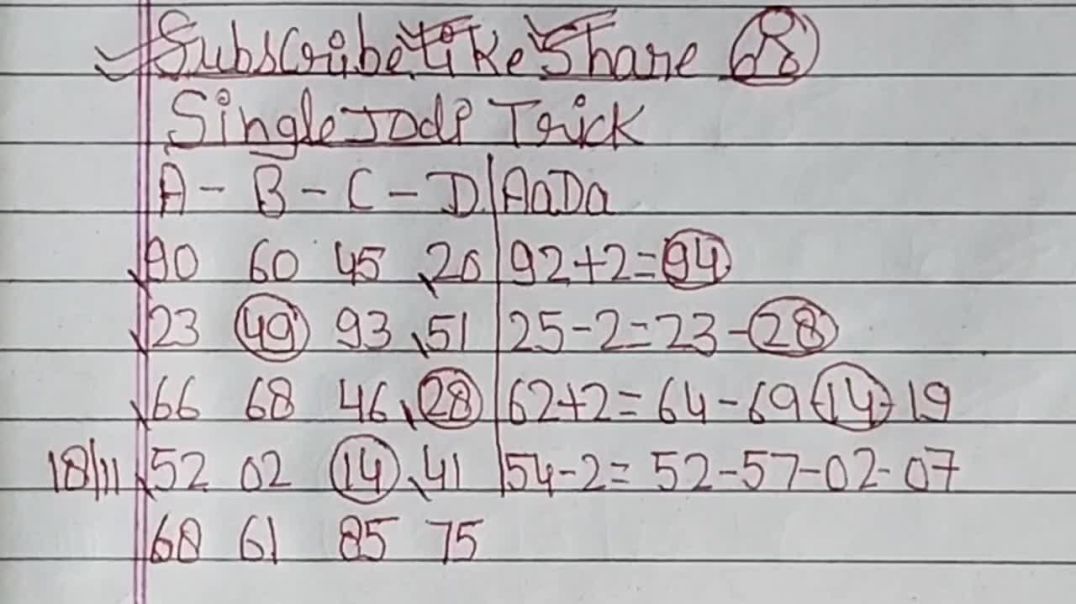 Subscribe Like Share
Single Jodi Trick
A - B - C - D | AaDa
90 60 45 20 | 92+2=94
23 49 93 51 | 25-2=23-28
66 68 46 28 | 62+2=64-69-14-19
18/11 52 02 14 41 | 54-2=52-57-02-07
68 61 85 75